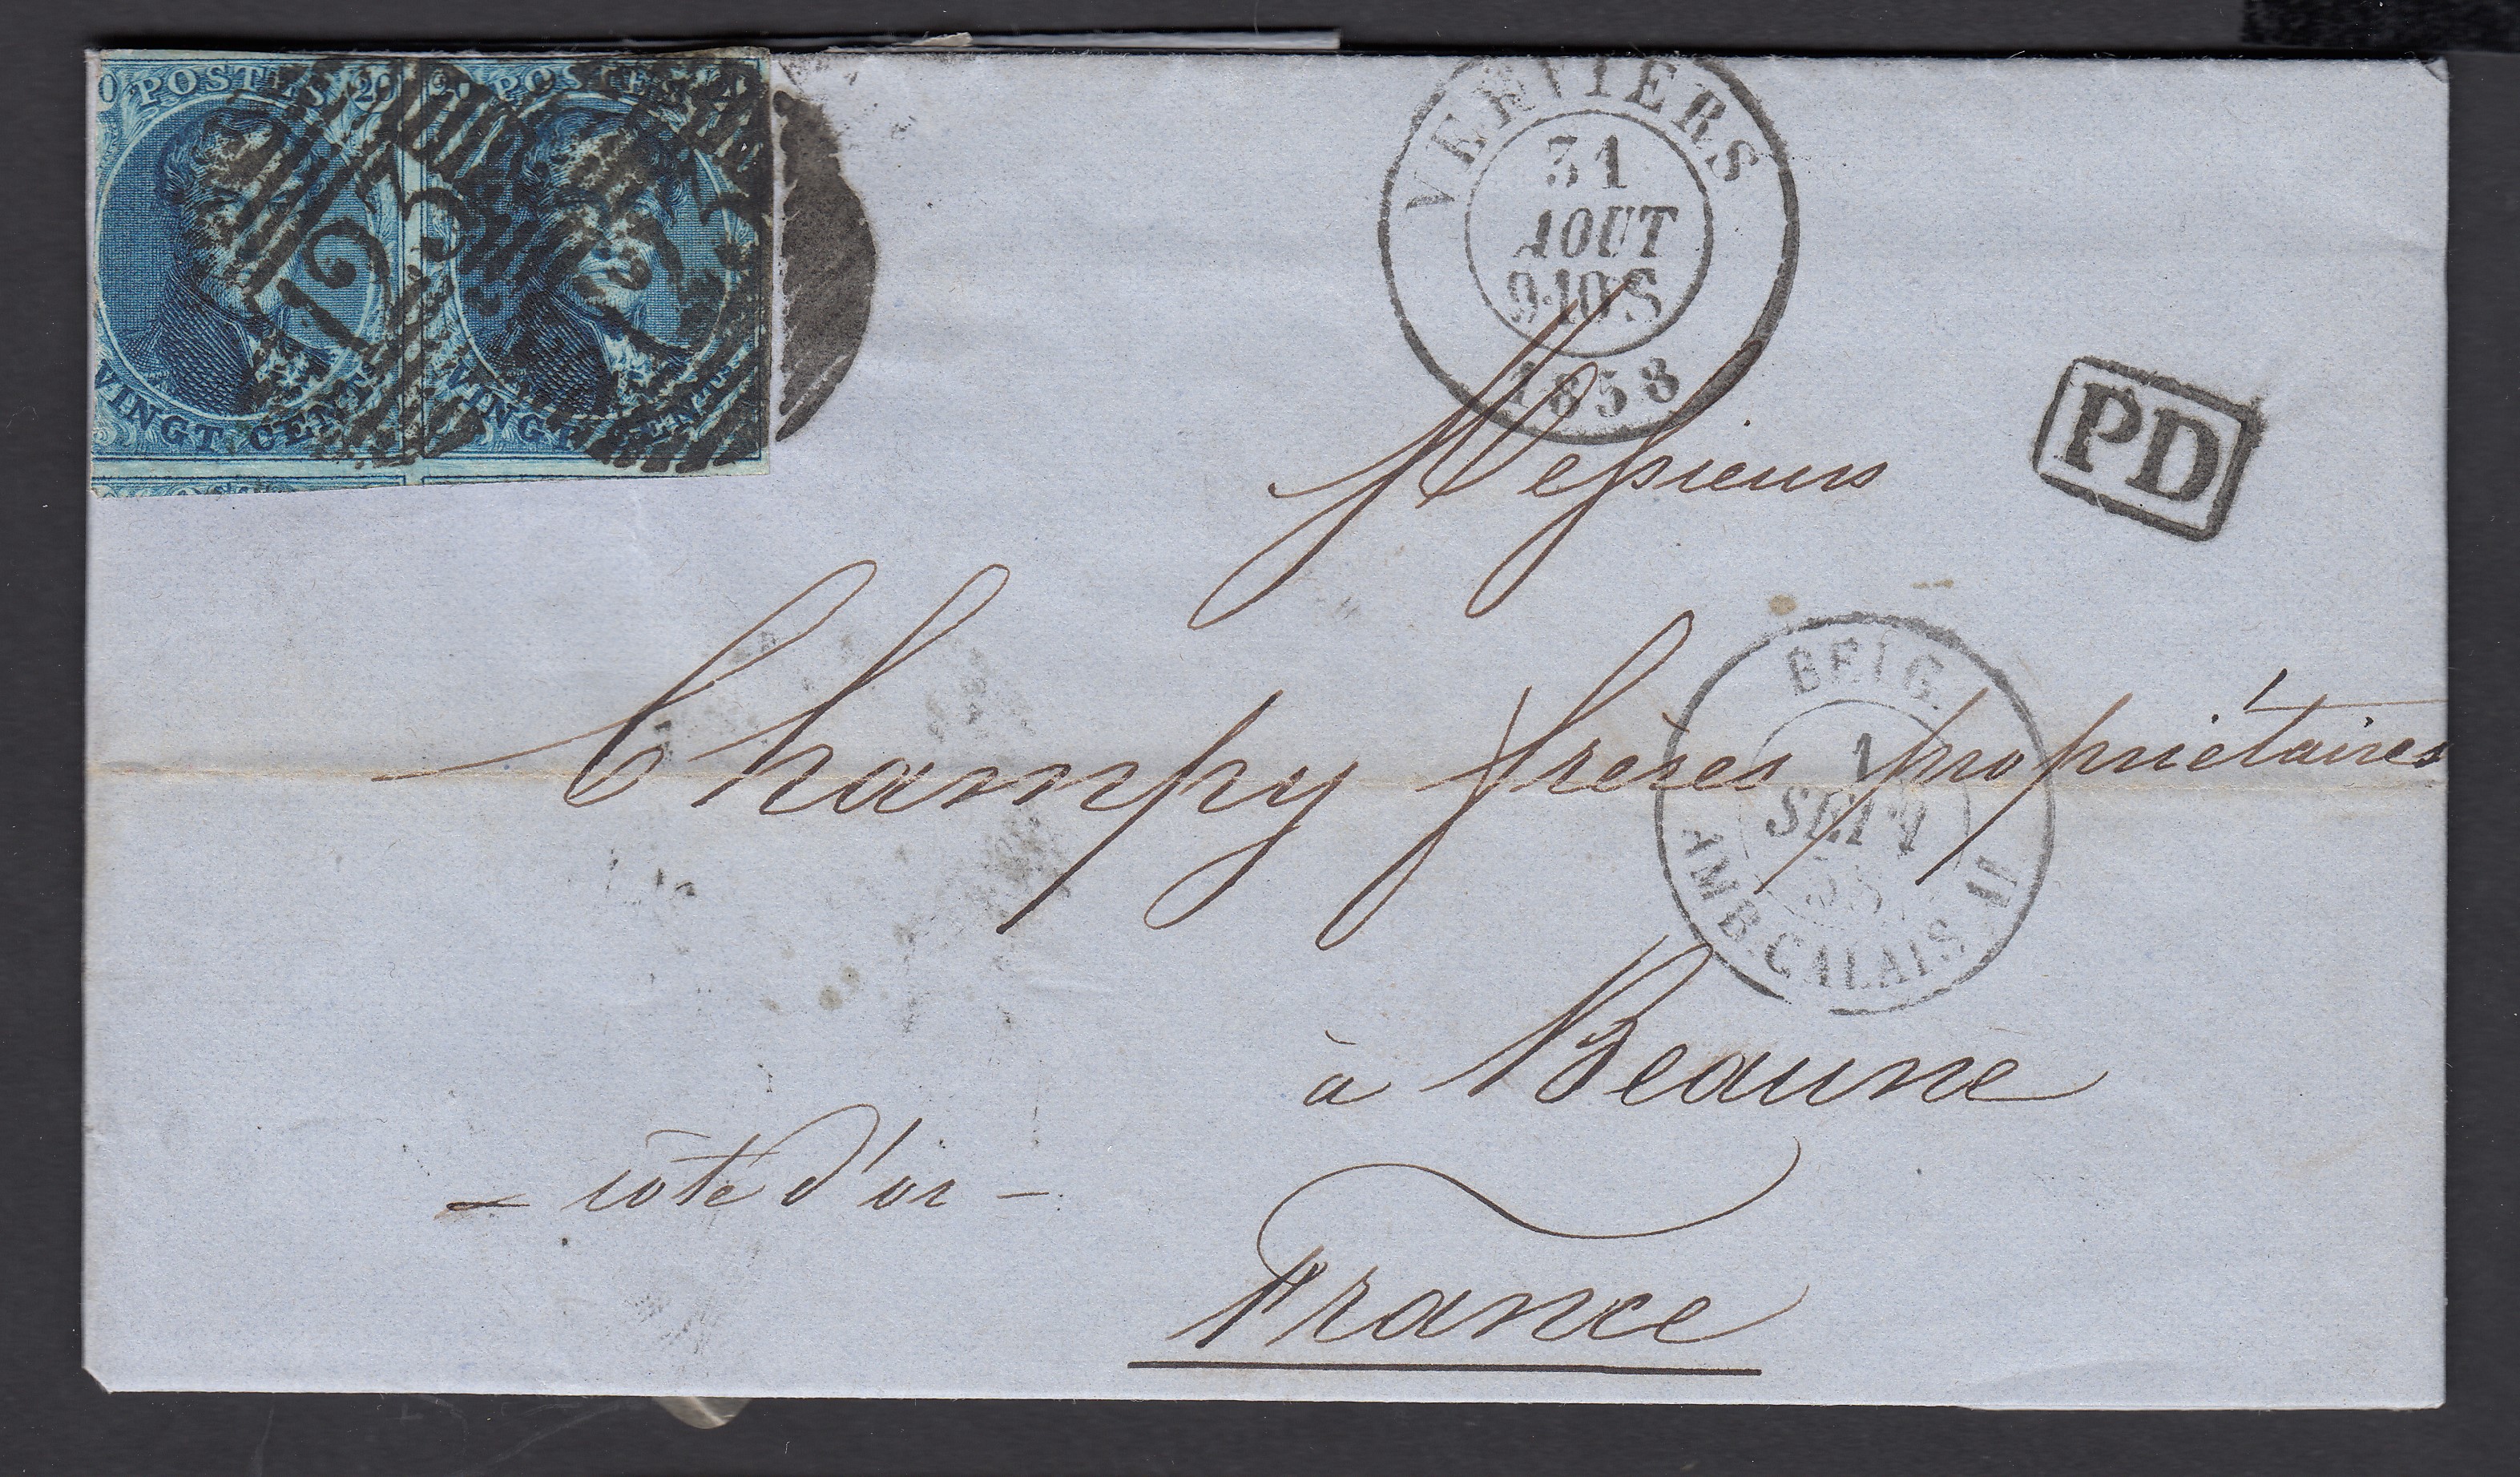 0 POSTES 20
20 POSTES 20
VINGT CENTS
VINGT CENTS
123
VERVIERS
31
AOUT
9-10S
1858
PD
Messieurs
BELG.
1
SEPT
58
AMB. CALAIS. A
Champy frères propriétaires
à Beaune
- côte d'or -
France